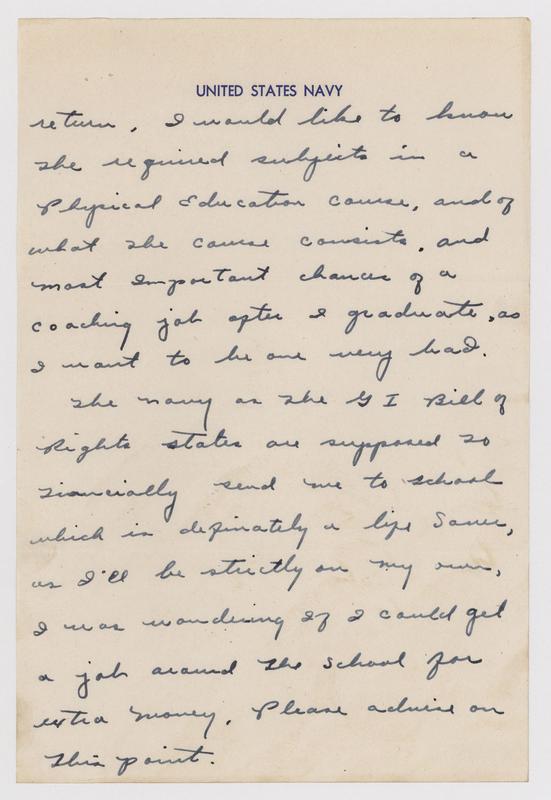 UNITED STATES NAVY
return. I would like to know
the required subjects in a
Physical Education course, and of
what the course consists, and
most important chances of a
coaching job after I graduate, as
I want to be one very bad.
The Navy as the G I Bill of
Rights states are supposed to
finincially send me to school
which is definately a life saver,
as I'll be strictly on my own,
I was wondering if I could get
a job around the school for
extra money. Please advise on
this point.